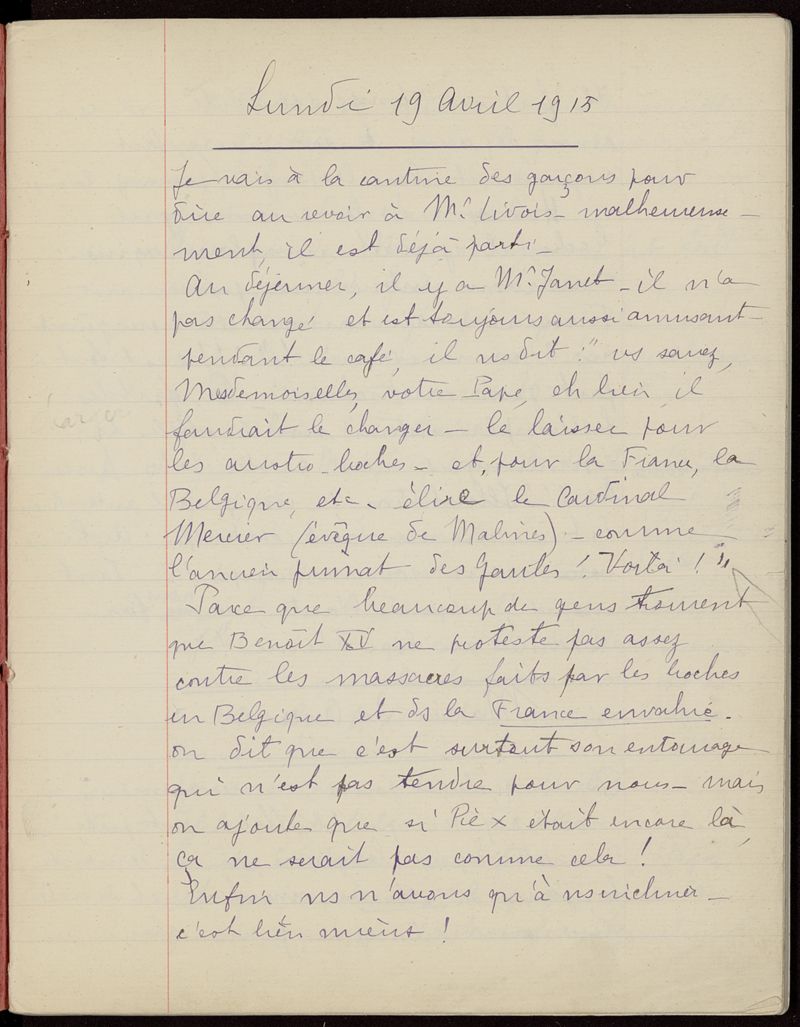 Lundi 19 Avril 1915
Je vais à la cantine des garçons pour
dire au revoir à Mr Livois - malheureuse -
ment, il est déjà parti -
Au déjeuner, il y a Mr Janet - il n'a
pas changé et est toujours aussi amusant -
pendant le café, il ns dit : " vs savez,
Mesdemoiselles, votre Pape, eh bien, il
faudrait le changer - le laisser pour
les austro-boches - et, pour la France, la
Belgique, etc - élire le Cardinal
Mercier (évêque de Malines) - comme
l'ancien primat des Gaules ! Voilà ! "
Parce que beaucoup de gens trouvent
que Benoît XV ne proteste pas assez
contre les massacres faits par les boches
en Belgique et ds la France envahie -
on dit que c'est surtout son entourage
qui n'est pas tendre pour nous - mais
on ajoute que si Pie X était encore là,
ça ne serait pas comme cela !
Enfin ns n'avons qu'à ns incliner -
c'est bien mieux !